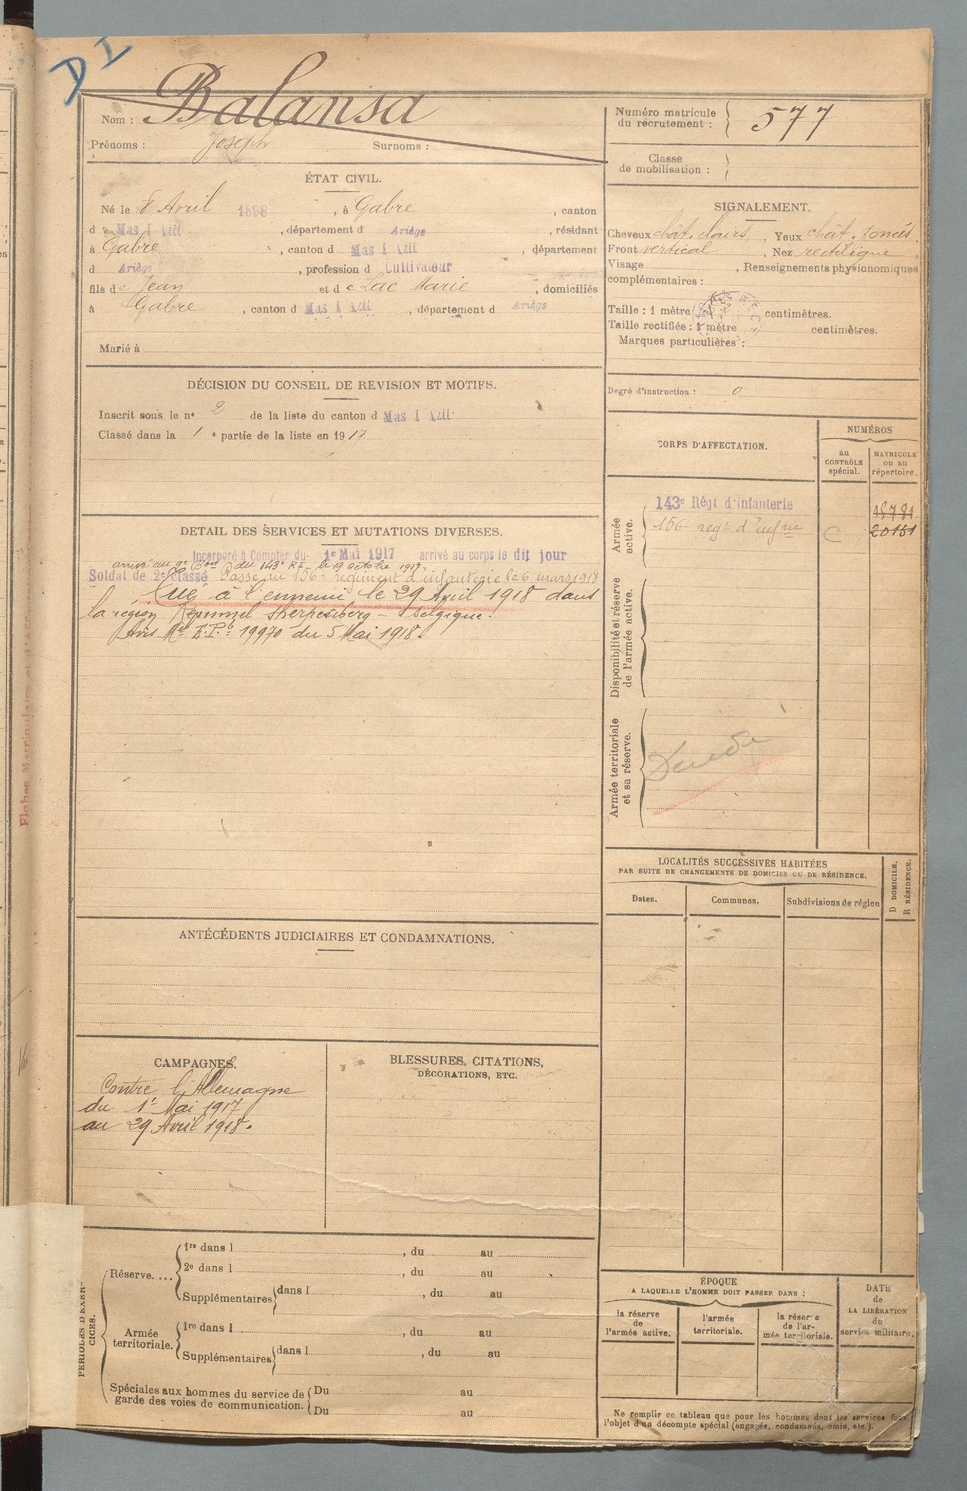 D I
Nom : Balansa
Prénoms : Joseph Surnoms :
Numéro matricule
du recrutement : 577
Classe
de mobilisation :
ÉTAT CIVIL.
Né le 8 Avril 1898, à Gabre, canton
de Mas d'Azil, département d Ariège, résidant
à Gabre, canton d Mas d'Azil, département
d Ariège, profession d Cultivateur
fils de Jean et de Lac Marie, domiciliés
à Gabre, canton d Mas d'Azil, département d Ariège
Marié à
SIGNALEMENT.
Cheveux chât. clairs, Yeux chât. foncés.
Front vertical, Nez rectiligne
Visage , Renseignements physionomiques
complémentaires :
Taille : 1 mètre centimètres.
Taille rectifiée : 1 mètre centimètres.
Marques particulières :
Degré d'instruction : 0
DÉCISION DU CONSEIL DE REVISION ET MOTIFS.
Inscrit sous le n° 2 de la liste du canton d Mas d'Azil
Classé dans la 1e partie de la liste en 1917
DETAIL DES SERVICES ET MUTATIONS DIVERSES.
Incorporé à Compter du 1e Mai 1917 arrivé au corps le dit jour
arrivé au 9e Bon du 143e RI, le 19 octobre 1917
Soldat de 2e classe Passé au 156e régiment d'infanterie le 6 mars 1918
Tué à l'ennemi le 29 Avril 1918 dans
la région Kemmel Scherpenberg - Belgique.
Avis Mel E.P. 19970 du 5 Mai 1918.
CORPS D'AFFECTATION.
NUMÉROS
au
CONTRÔLE
spécial.
MATRICULE
ou au
répertoire.
Armée
active.
143e Régt d'infanterie 18781
156e regt d'infrie C 20151
Disponibilité et réserve
de l'armée active.
Armée territoriale
et sa réserve.
Décédé
LOCALITÉS SUCCESSIVES HABITÉES
PAR SUITE DE CHANGEMENTS DE DOMICILE OU DE RÉSIDENCE.
Dates. Communes. Subdivisions de région
D DOMICILE.
R RÉSIDENCE.
ANTÉCÉDENTS JUDICIAIRES ET CONDAMNATIONS.
CAMPAGNES.
Contre l'Allemagne
du 1er Mai 1917
au 29 Avril 1918.
BLESSURES, CITATIONS,
DÉCORATIONS, ETC.
PÉRIODES D'EXER-
CICES.
Réserve....
1re dans l , du au
2e dans l , du au
Supplémentaires dans l , du au
Armée
territoriale.
1re dans l , du au
Supplémentaires dans l , du au
Spéciales aux hommes du service de
garde des voies de communication.
Du au
Du au
ÉPOQUE
A LAQUELLE L'HOMME DOIT PASSER DANS :
la réserve
de
l'armée active.
l'armée
territoriale.
la réserve
de l'ar-
mée territoriale.
DATE
de
LA LIBÉRATION
du
service militaire.
Ne remplir ce tableau que pour les hommes dont les services font
l'objet d'un décompte spécial (engagés, condamnés, omis, etc.).